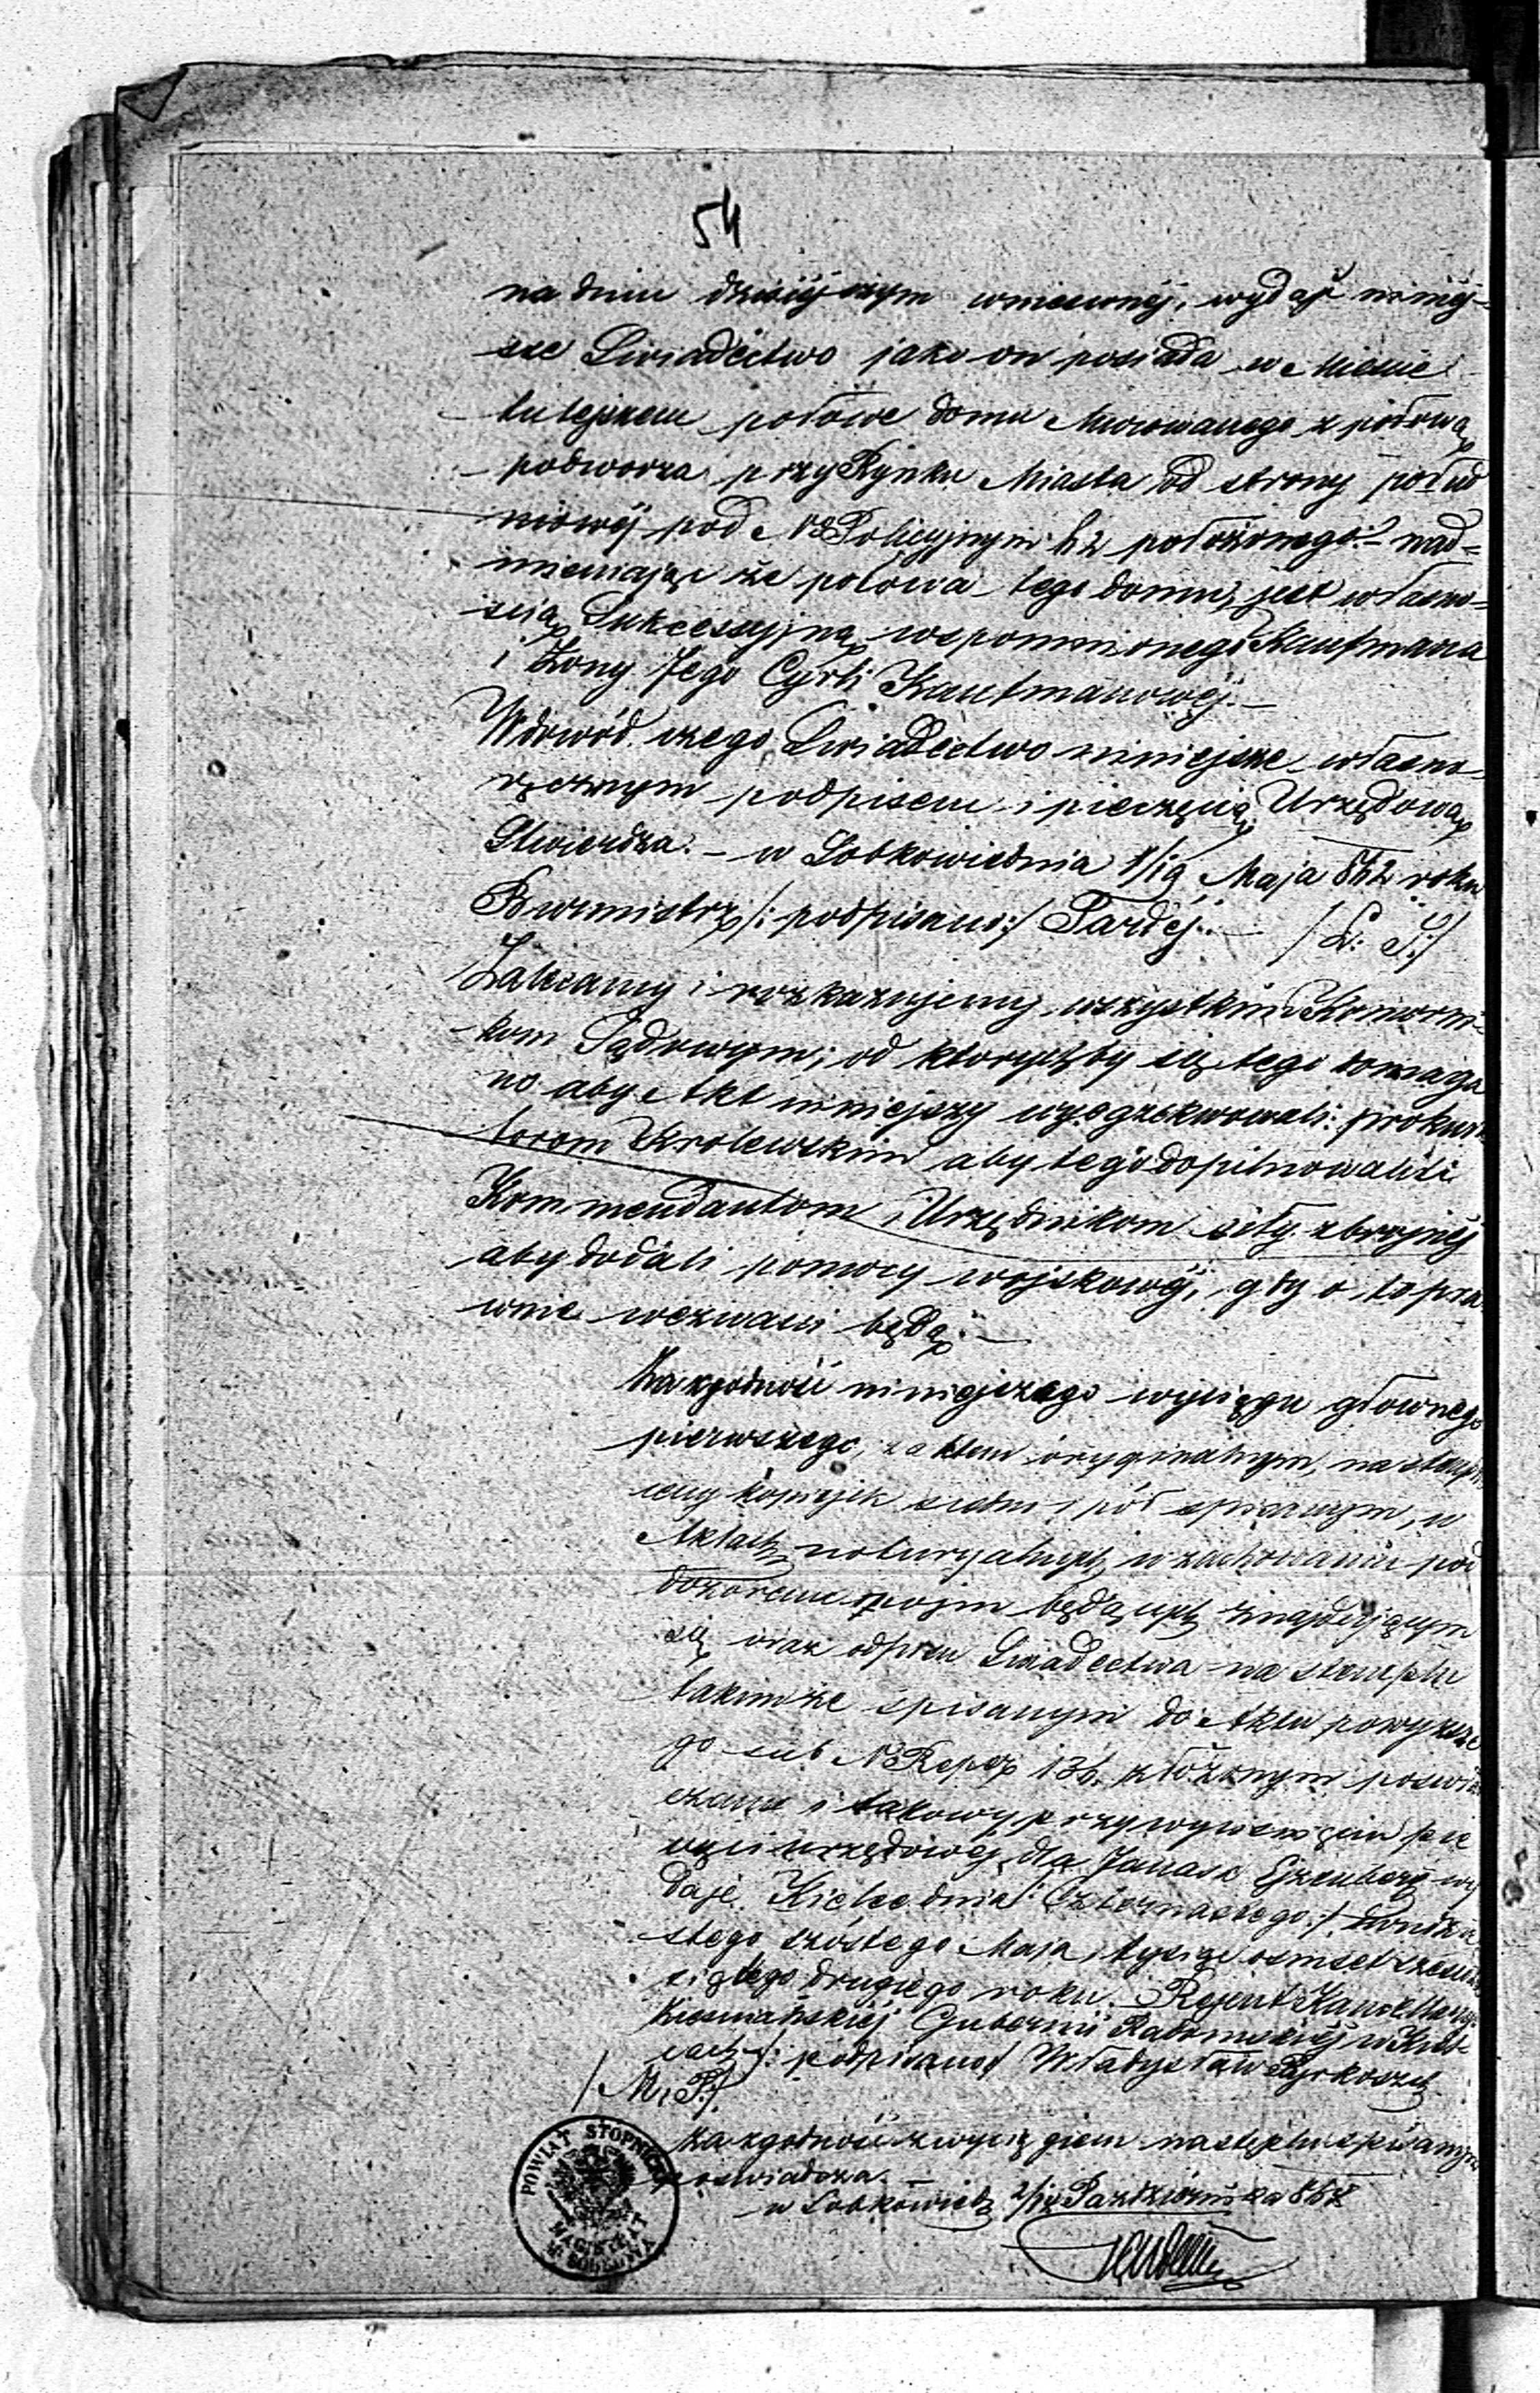 54
na dniu dzisiéjszym wniesionéj, wydaje niniéj-
sze Swiadectwo jako on posiada w Mieście
tutejszem połowe domu Murowanego z połową
podworza przy Rynku Miasta od strony połud
niowéj pod No Policyjnym 42 położonego:- nad-
mieniając że połowa tego domu, jest własno-
scią Sukcessyjną wspomnionego Kaufmana
i Żony Jego Cyrli Kaufmanowéj.-
W dowód czego Swiadectwo niniejsze własno-
ręcznym podpisem i pieczęcią Urzędową
Stwierdza.- w Sobkowie dnia /19 Maja 862 roku
Burmistrz /:podpisano:/ /L: S:/
Zalecamy i rozkazujemy wszystkim Komorni-
kom Sądowym, od ktorychby się tego domaga
no aby Akt niniejszy wyegzekwowali: prokura
torom Krolewskim aby tego dopilnowali i
Kommendantom i Urzędnikom siły zbrojnéj
aby dodali pomocy wojskowéj, gdy o to pra
wnie wezwani będą.-
Za zgodność niniejszego wyciągu głownego
pierwszego, z aktem oryginalnym, na stempl
ceny kopiejek siedm i pół spisanym, w
Aktach notaryalnych w zachowaniu pod
dozorem mojm będących znajdującym
się oraz odpisu Swiadectwa na stemplu
takimże spisanym do Aktu powyższe
go sub No Reper 136. złożonym poswia
czam i takowy przy wyciśnięciu pie
częci urzędowéj dla Janasa Ejzenberg wy
daje. Kielce dnia Czternastego / dwudzie
stego szóstego Maja, tysiąc osmset sześćdzie
siątego drugiego roku. Rejent Kancellaryi
Ziemiańskiéj Gubernii Radomskiéj w Kiel-
cach /:podpisano/ Władysław Pyrkosz
/M: P:/
Za zgodność z wyciągiem na stemplu spisanym
poswiadcza.-
w Sobkowie d Pazdziernika 86
POWIAT STOPNICKI
MAGISTRAT
M. SOBKOWA